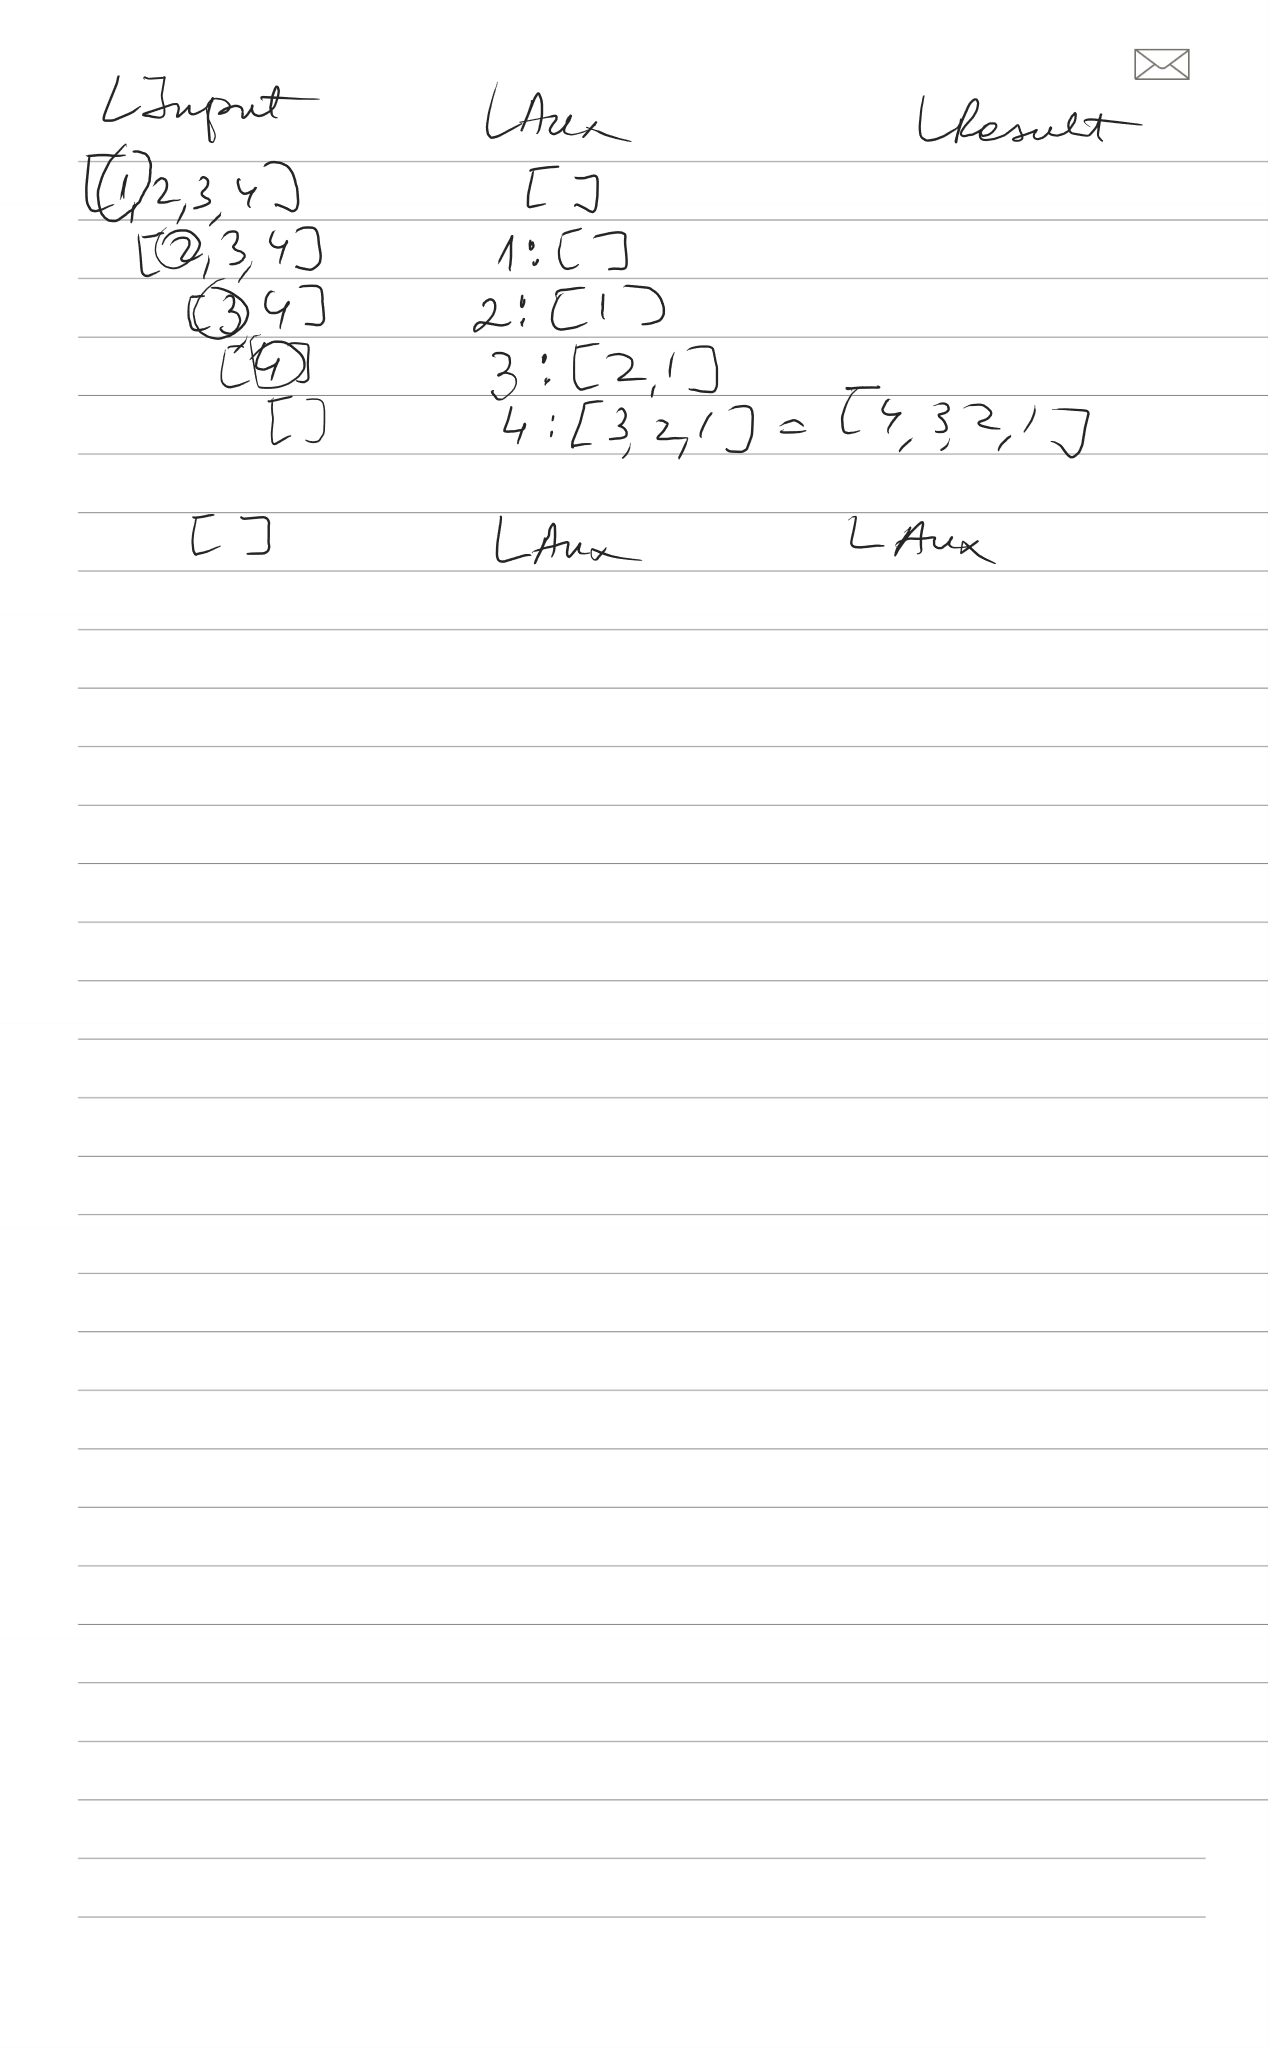 LInput LAux LResult
[1,2,3,4] []
[2,3,4] 1:[]
[3 4] 2:[1]
[4] 3:[2,1]
[] 4:[3,2,1] = [4,3,2,1]
[] LAux LAux